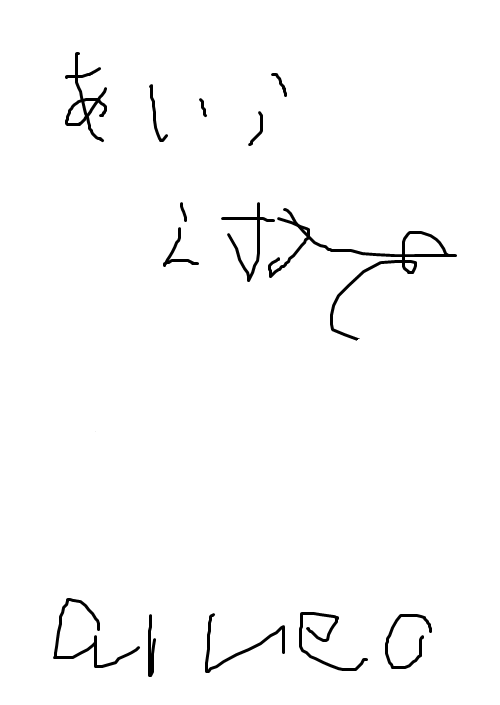 あいう
えお
aiueo